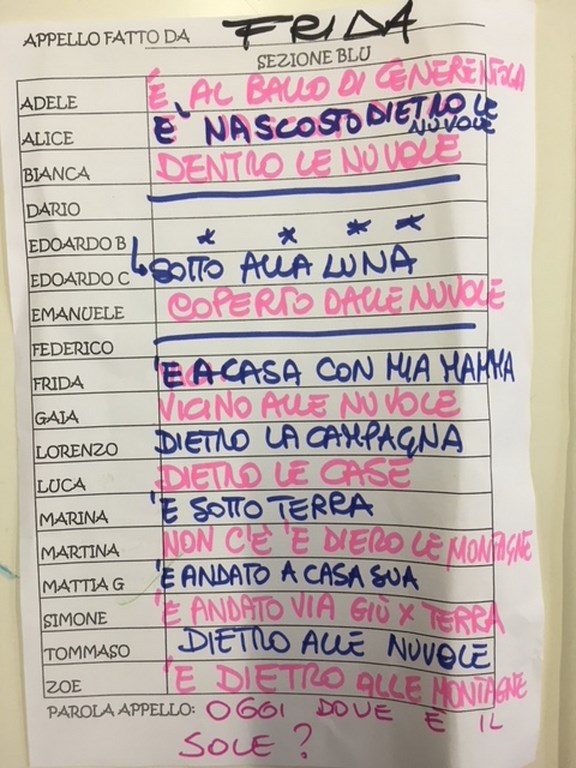 APPELLO FATTO DA FRIDA
SEZIONE BLU
ADELE È AL BALLO DI CENERENTOLA
ALICE È NASCOSTO DIETRO LE NUVOLE
BIANCA DENTRO LE NUVOLE
DARIO
EDOARDO B
EDOARDO C SOTTO ALLA LUNA
EMANUELE COPERTO DALLE NUVOLE
FEDERICO
FRIDA È A CASA CON MIA MAMMA
GAIA VICINO ALLE NUVOLE
LORENZO DIETRO LA CAMPAGNA
LUCA DIETRO LE CASE
MARINA È SOTTO TERRA
MARTINA NON C'È È DIERO LE MONTAGNE
MATTIA G È ANDATO A CASA SUA
SIMONE È ANDATO VIA GIÙ X TERRA
TOMMASO DIETRO ALLE NUVOLE
ZOE È DIETRO ALLE MONTAGNE
PAROLA APPELLO: OGGI DOVE È IL
SOLE?